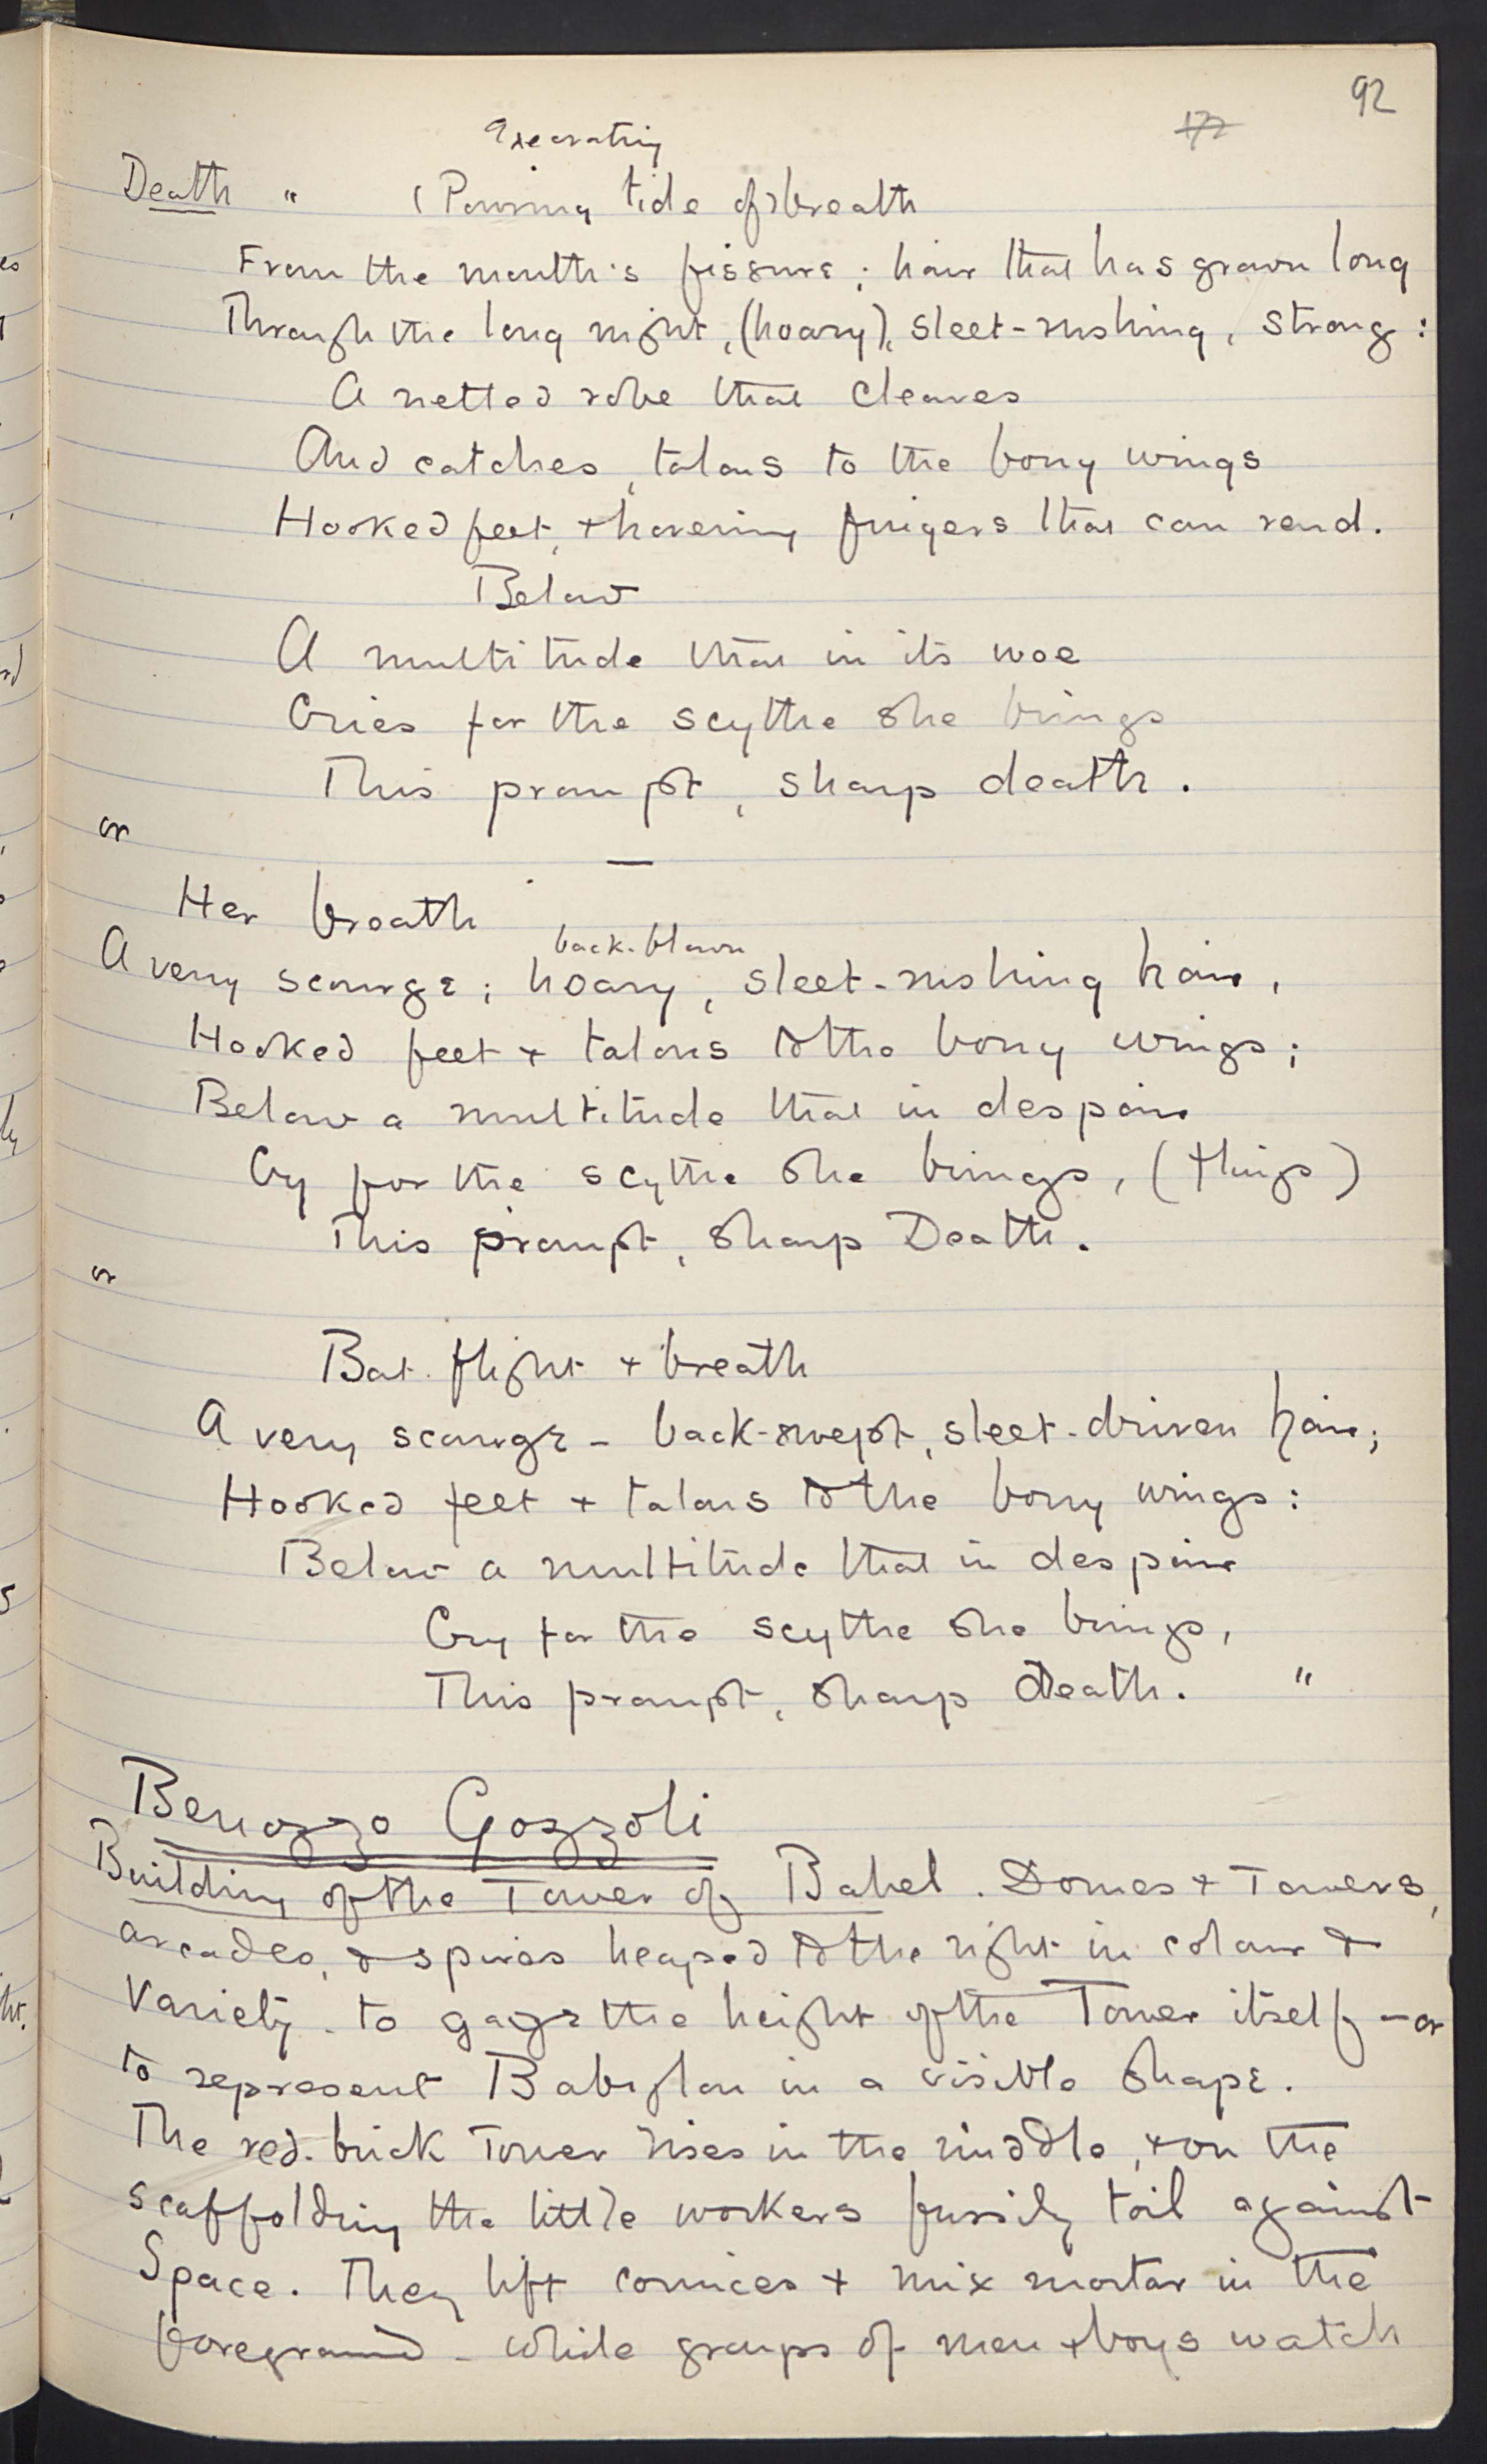 92
177
Execrating
Death " (Pouring tide of) breath
From the mouth's fissure; hair that has grown long
Through the long night, (hoary), sleet-rushing, strong:
A netted robe that cleaves
And catches, talons to the bony wings
Hooked feet, + hovering fingers that can rend.
Below
A multitude that in its woe
Cries for the scythe she brings
This prompt, sharp death.
or
—
Her breath
back-blown
A very scourge; hoary, sleet-rushing hair,
Hooked feet + talons to the bony wings;
Below a multitude that in despair
Cry for the scythe she brings, (things)
This prompt, sharp Death.
or
Bat-flight + breath
A very scourge - back-swept, sleet-driven hair;
Hooked feet + talons to the bony wings:
Below a multitude that in despair
Cry for the scythe she brings,
This prompt, sharp Death. "
Benozzo Gozzoli
Building of the Tower of Babel. Domes + Towers,
arcades, & spires heaped to the right in colour &
Variety - to gage the height of the Tower itself - or
to represent Babylon in a visible shape.
The red-brick Tower rises in the middle, + on the
scaffolding the little workers fussily toil against
Space. They lift cornices + mix mortar in the
foreground - while groups of men + boys watch